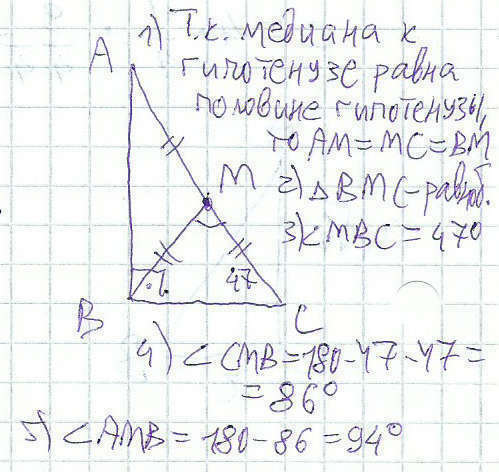 1) Т.к. медиана к
гипотенузе равна
половине гипотенузы,
то AM = MC = BM
2) △ BMC - равноб.
3) ∠MBC = 47°
A
M
47
B
C
4) ∠CMB = 180 - 47 - 47 =
= 86°
5) ∠AMB = 180 - 86 = 94°